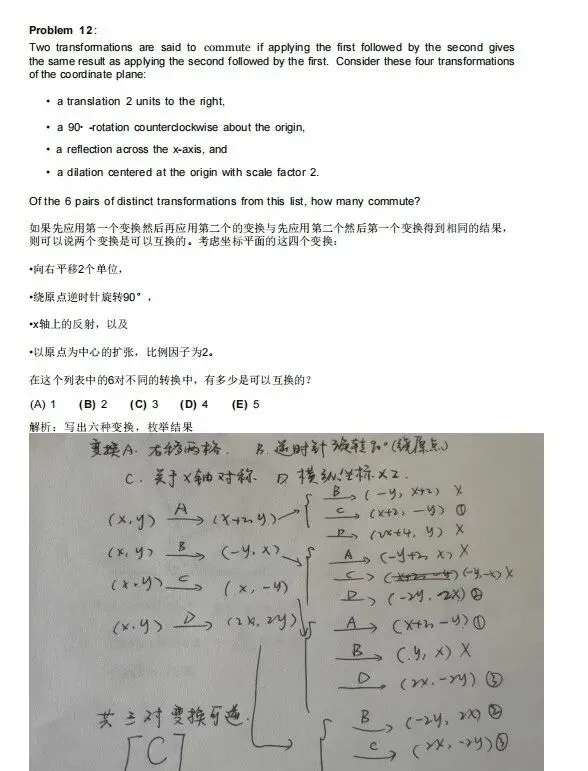 Problem 12:
Two transformations are said to commute if applying the first followed by the second gives
the same result as applying the second followed by the first. Consider these four transformations
of the coordinate plane:
• a translation 2 units to the right,
• a 90° -rotation counterclockwise about the origin,
• a reflection across the x-axis, and
• a dilation centered at the origin with scale factor 2.
Of the 6 pairs of distinct transformations from this list, how many commute?
如果先应用第一个变换然后再应用第二个的变换与先应用第二个然后第一个变换得到相同的结果，
则可以说两个变换是可以互换的。考虑坐标平面的这四个变换：
•向右平移2个单位，
•绕原点逆时针旋转90°，
•x轴上的反射，以及
•以原点为中心的扩张，比例因子为2。
在这个列表中的6对不同的转换中，有多少是可以互换的？
(A) 1 (B) 2 (C) 3 (D) 4 (E) 5
解析：写出六种变换，枚举结果
变换A. 右移两格. B. 逆时针旋转90°(绕原点)
C. 关于X轴对称 D 横纵坐标×2.
(x,y) A→ (x+2,y)
B→ (-y, x+2) X
C→ (x+2, -y) ①
D→ (2x+4, y) X
(x,y) B→ (-y,x)
A→ (-y+2, x) X
C→ (-y,-x) X
D→ (-2y, 2x) ②
(x,y) C→ (x,-y)
A→ (x+2,-y) ①
B→ (y, x) X
D→ (2x,-2y) ③
(x,y) D→ (2x,2y)
B→ (-2y, 2x) ②
C→ (2x, -2y) ③
共三对变换可逆.
[C]